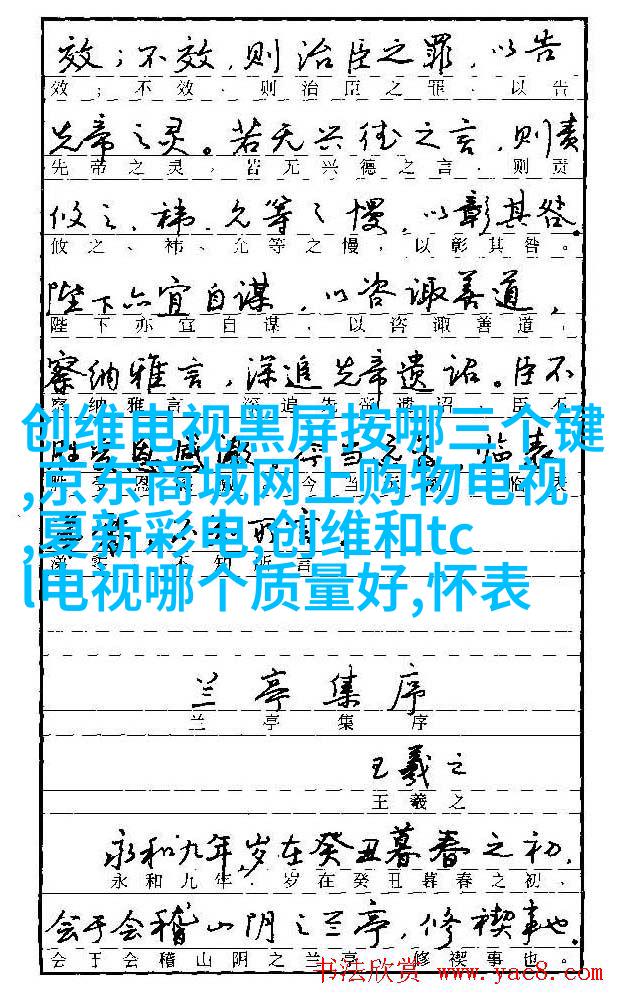 效；不效，则治臣之罪，以告
效；不效、则治臣之罪、以告
先帝之灵。若无兴德之言，则责
先帝之灵，若无兴德之言，则责
攸之、祎、允等之慢，以彰其咎。
攸之、祎、允等之慢，以彰其咎。
陛下亦宜自谋，以咨诹善道，
陛下亦宜自谋，以咨诹善道，
察纳雅言，深追先帝遗诏。臣不
创维电视黑屏按哪三个键
,京东商城网上购物电视
,夏新彩电,创维和tc
l电视哪个质量好,怀表
不知所言
兰亭集序
兰亭集序
王羲之
王羲之
永和九年，岁在癸丑暮春之初，
永和九年．岁在癸丑暮春之初、
会于会稽山阴之兰亭，修禊事也。
会于会稽山阴之兰亭　修禊事也。
书法欣赏 www.yac8.com